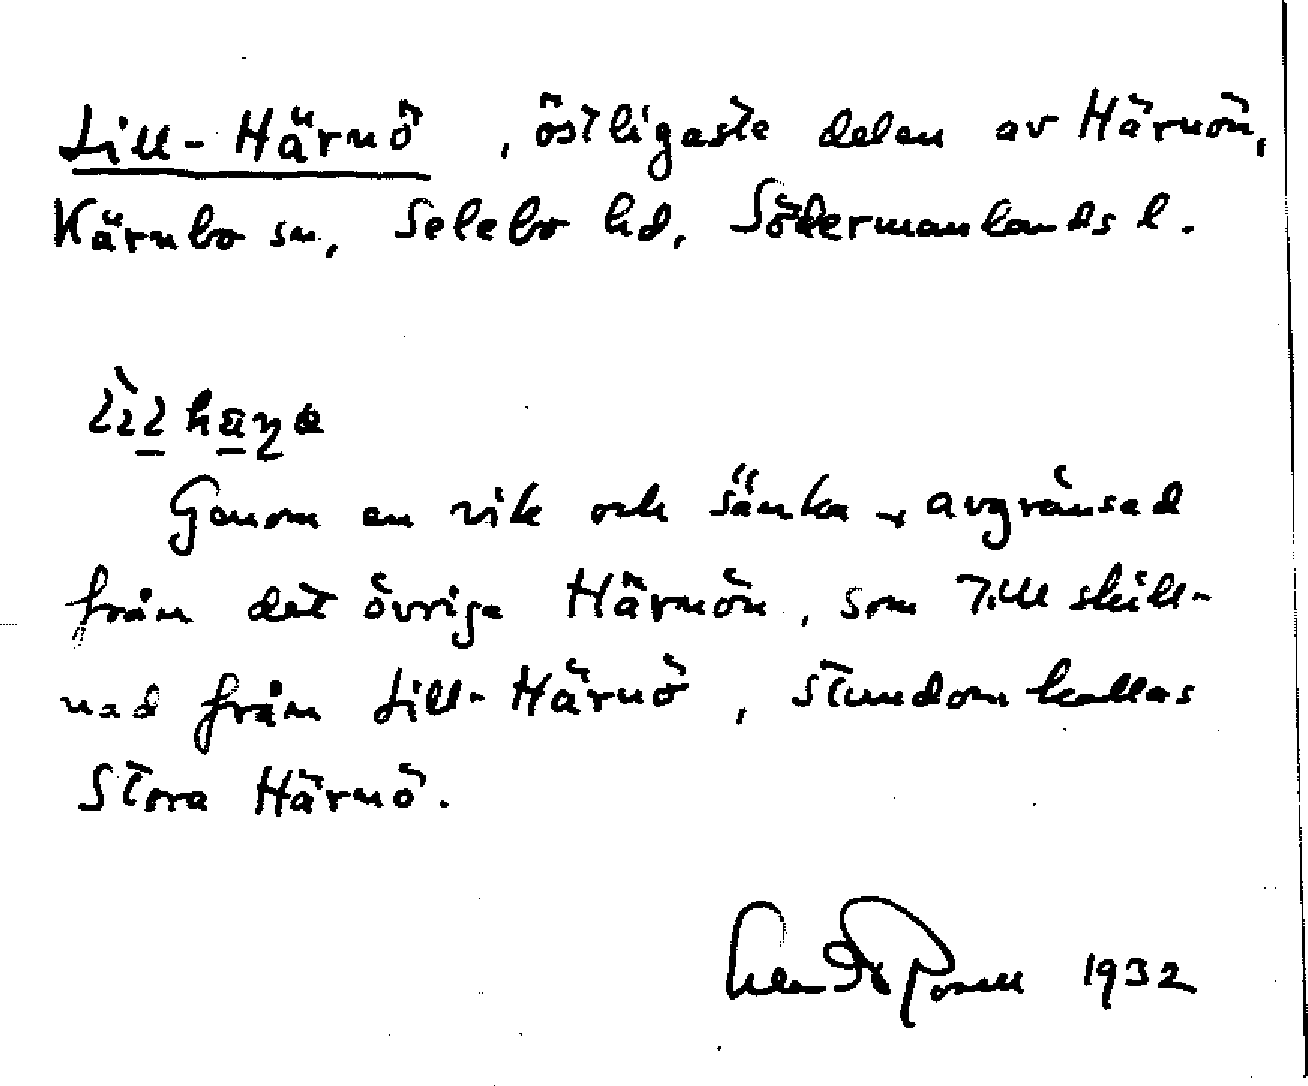 Lill-Härnö, östligaste delen av Härnön,
Kärnbo sn, Selebo hd, Södermanlands l.
Genom en vik och sänka avgränsad
från det övriga Härnön, som till skill-
nad från Lill-Härnö, stundom kallas
Stora Härnö.
1932